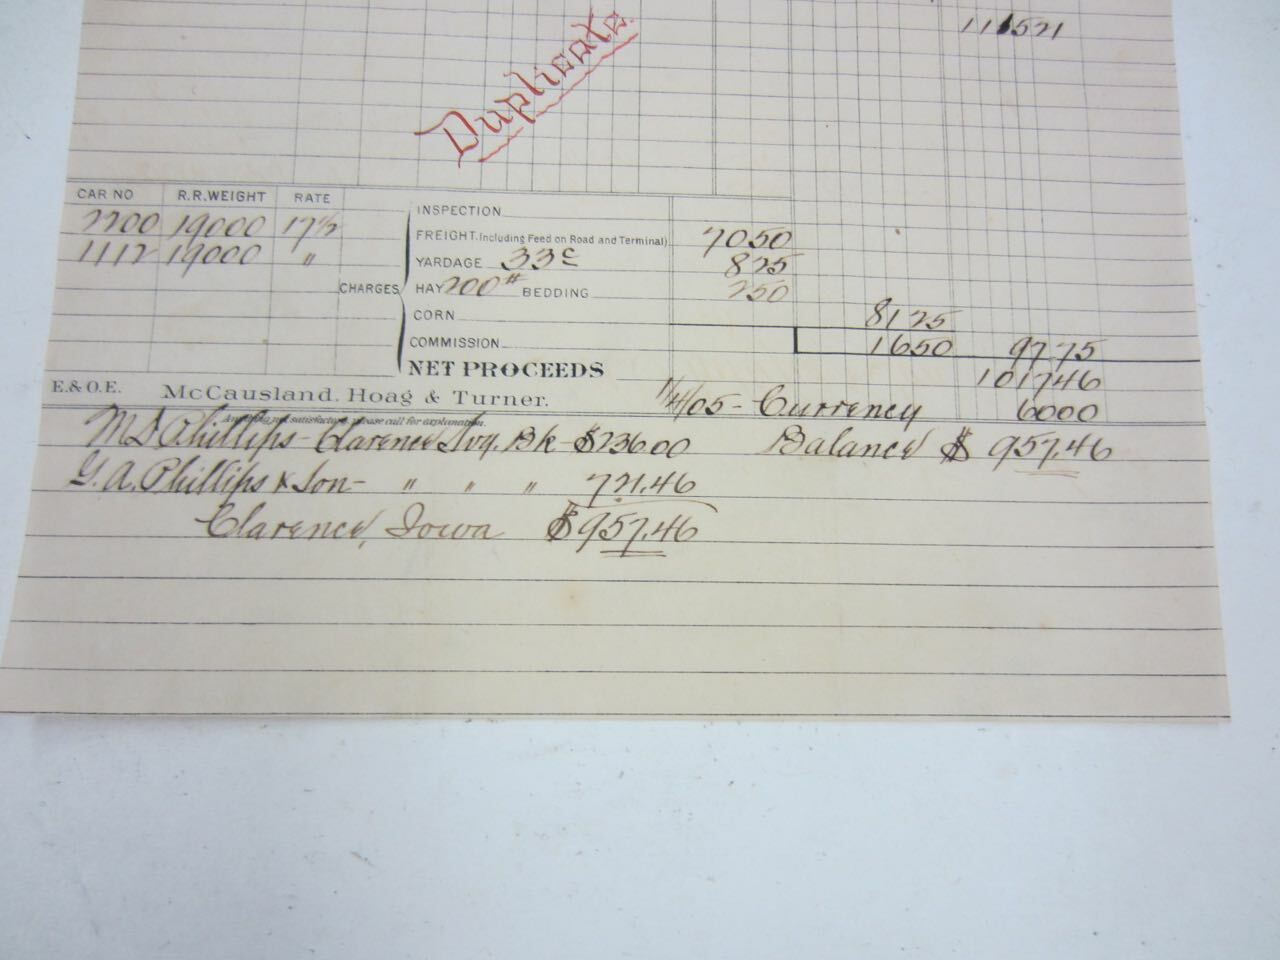 111521
Duplicate.
CAR NO R.R.WEIGHT RATE
2200 19000 17½
1112 19000 "
INSPECTION
FREIGHT.(including Feed on Road and Terminal) 7050
YARDAGE 33c 825
CHARGES HAY 200# BEDDING 250
CORN 8125
COMMISSION 1650 9775
NET PROCEEDS 101746
E.& O.E. McCausland, Hoag & Turner. 1/4/05 - Currency 6000
Anything not satisfactory, please call for explanation.
M S Phillips - Clarence Svg. Bk - $236.00 Balance $ 957.46
G. A. Phillips & Son - " " " 721.46
Clarence, Iowa $957.46